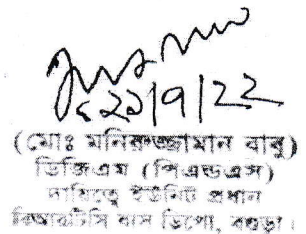 ২১/9/22
(মোঃ মনিরুজ্জামান বাবু)
ডিজিএম (পিএন্ডএস)
দায়িত্বে ইউনিট প্রধান
বিআরটিসি বাস ডিপো, বগুড়া।